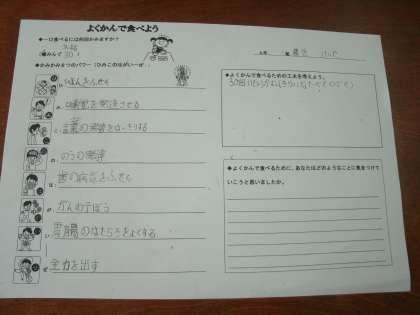 よくかんで食べよう
◆一口食べるには何回かみますか?
30
◆かみかみ8つのパワー（ひみこのはがいーぜ）
ひ
ひまんをふせぐ
み
味覚を発達させる
こ
言葉の発音をはっきりする
の
のうの発達
は
歯の病気をふせぐ
が
がんの予ぼう
い
胃腸のはたらきをよくする
ぜ
全力を出す
年
組
◆よくかんで食べるための工夫を考えよう。
30回
◆よくかんで食べるために、あなたはどのようなことに気をつけて
いこうと思いましたか。